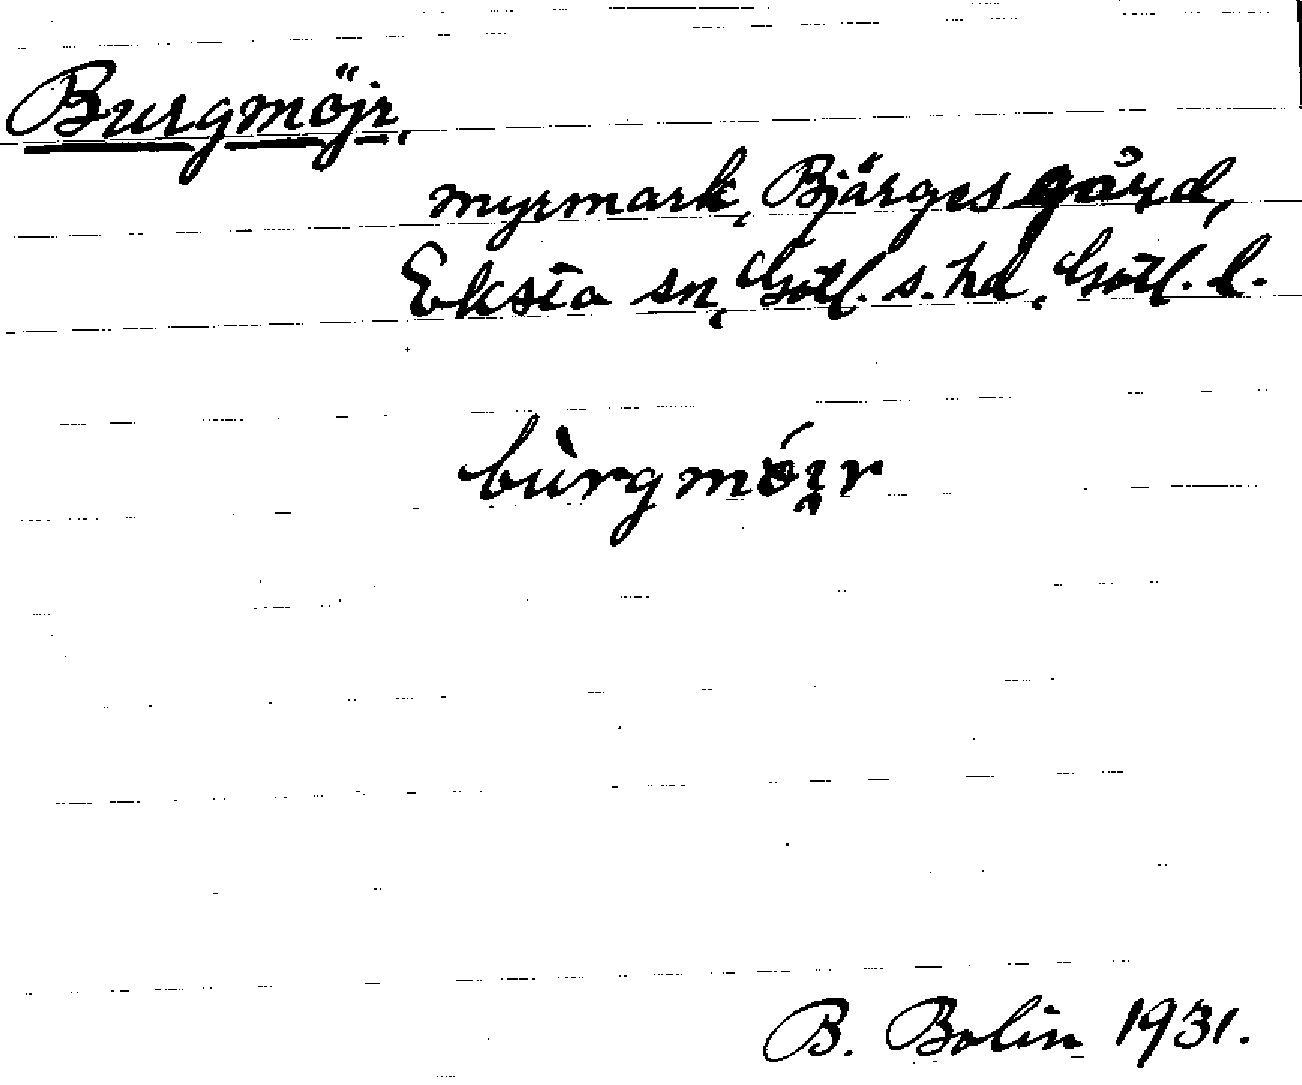 Burgmöjr,
myrmark, Bjärges gård,
Eksta sn, Gotl. s. hd, Gotl. l.
bùrgmói̯r
B. Bolin 1931.